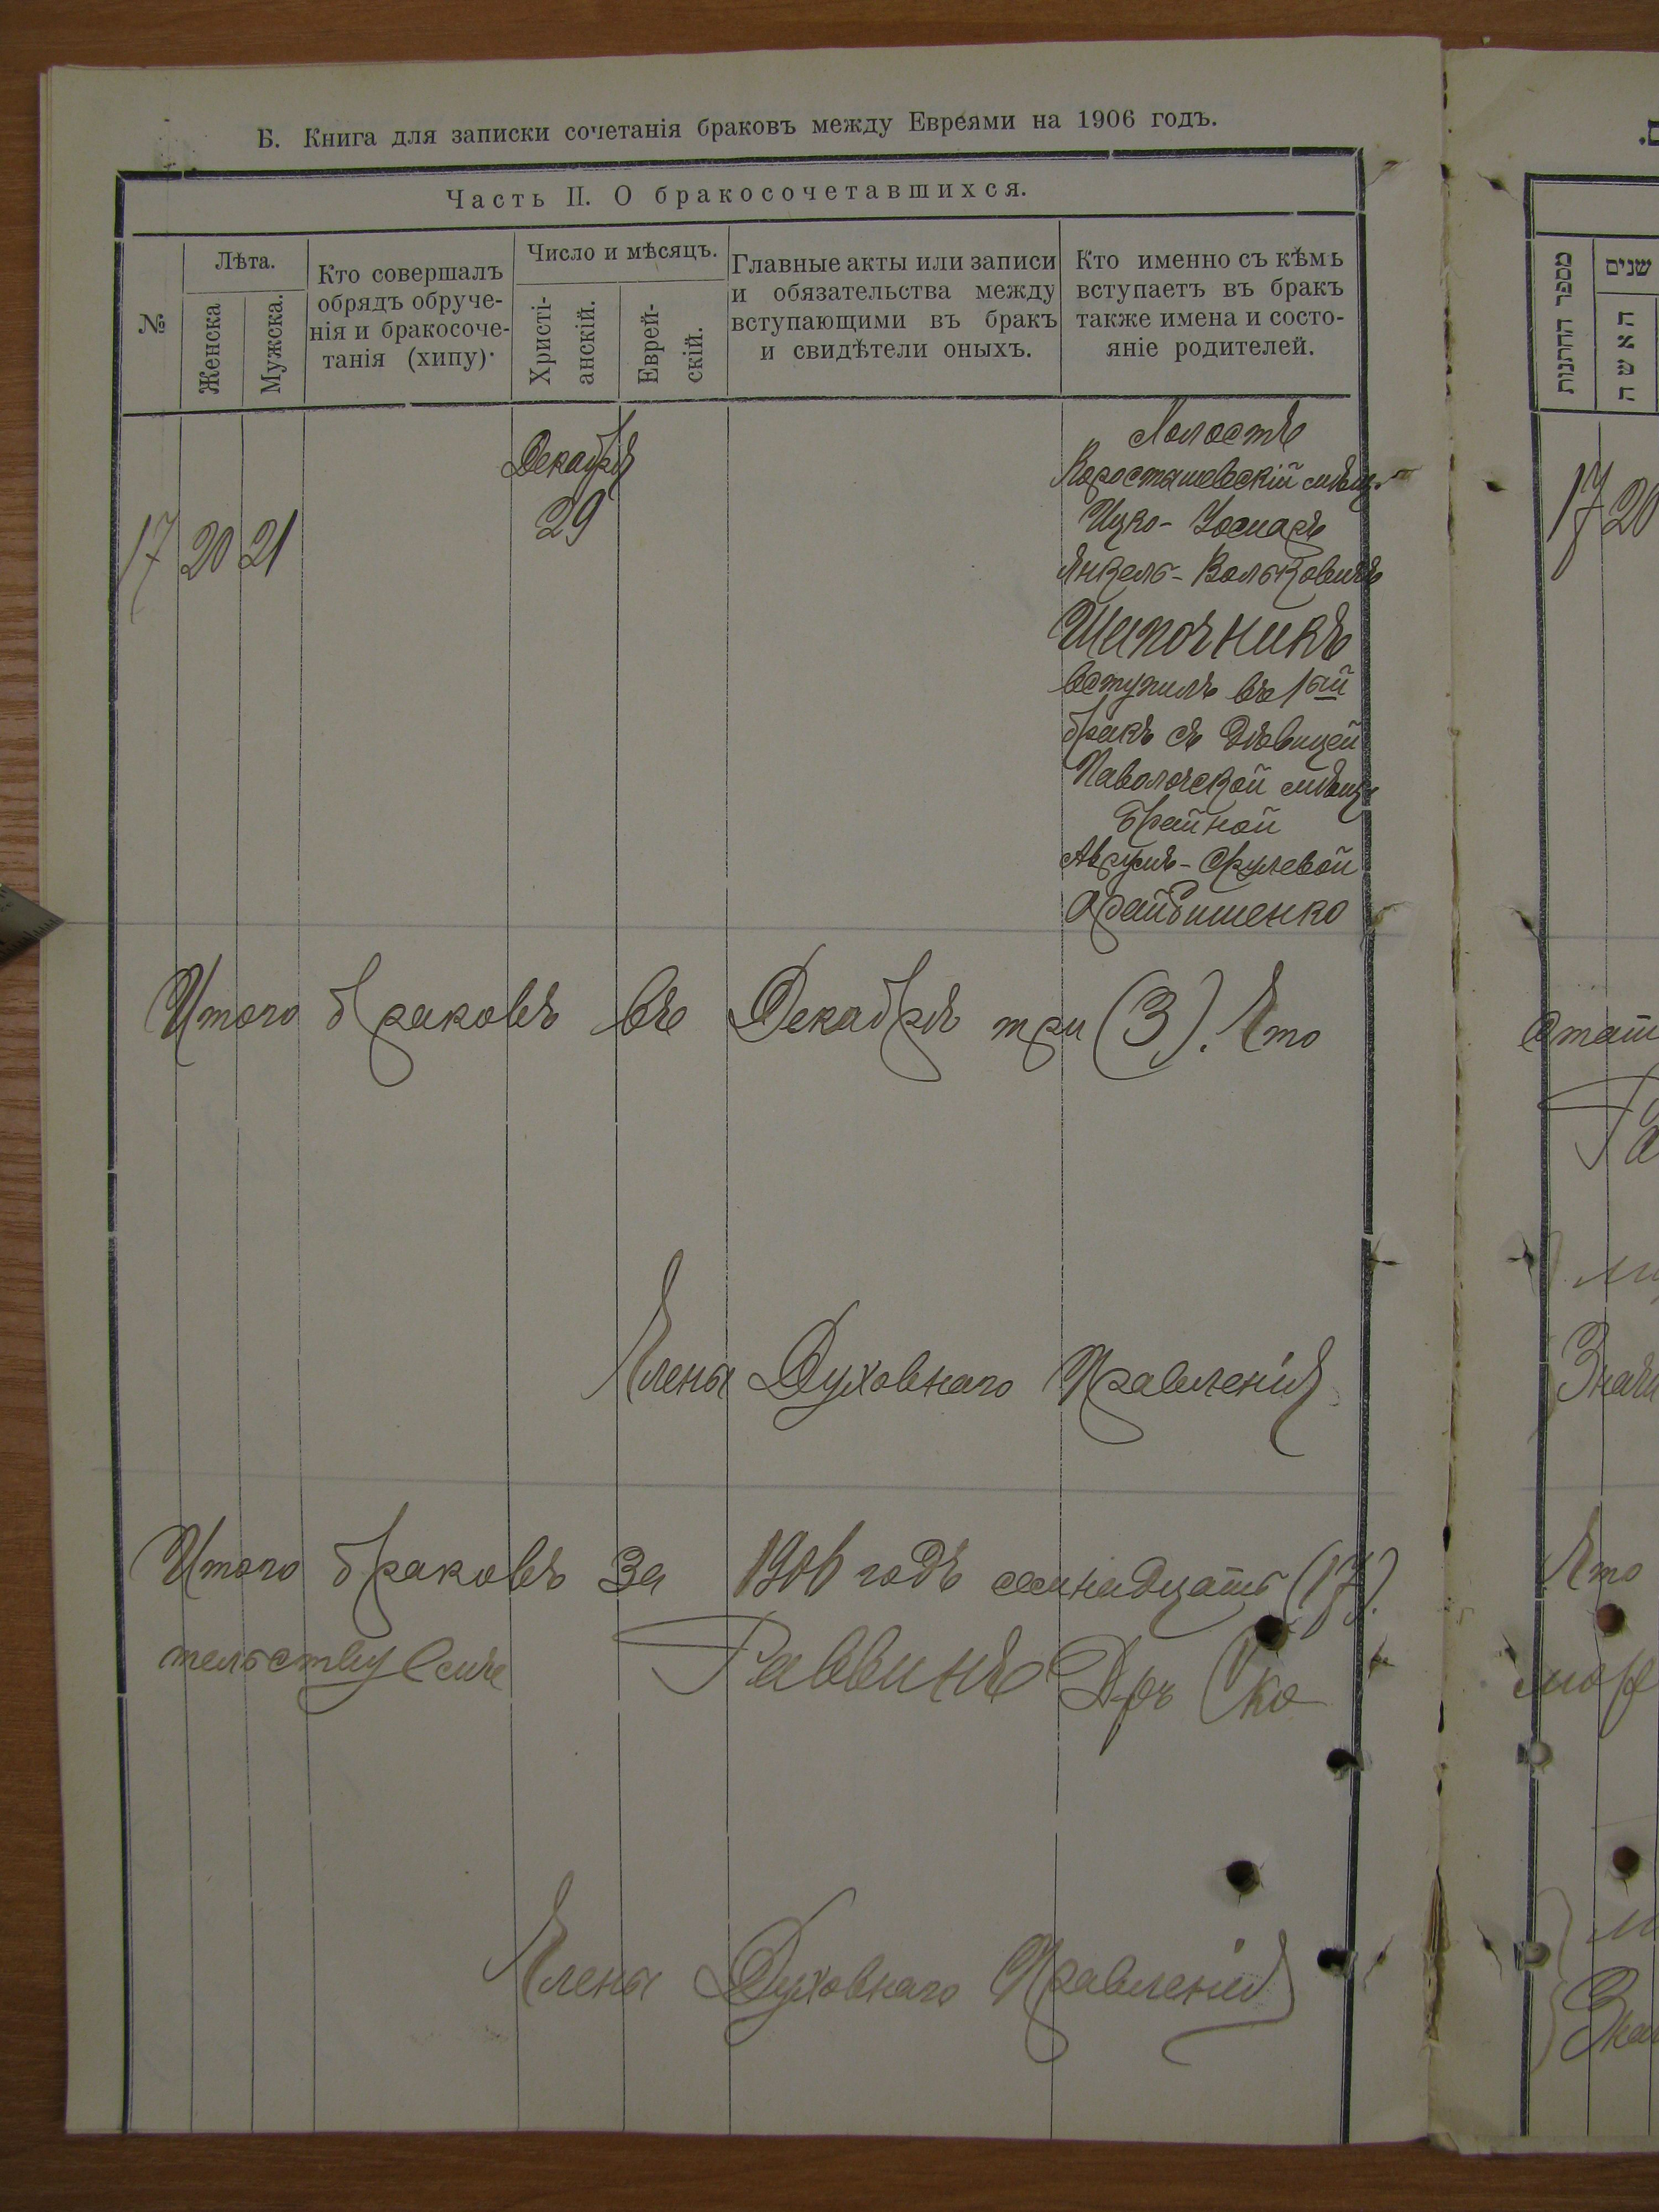 Б. Книга для записки сочетанія браковъ между Евреями на 1906 годъ.
Часть II. О бракосочетавшихся.
№
Лѣта.
Женска
Мужска.
Кто совершалъ
обрядъ обруче-
нія и бракосоче-
танія (хипу).
Число и мѣсяцъ.
Христі-
анскій.
Еврей-
скій.
Главные акты или записи
и обязательства между
вступающими въ бракъ
и свидѣтели оныхъ.
Кто именно съ кѣмъ
вступаетъ въ бракъ
также имена и состо-
яніе родителей.
17 20 21
Декабря
29
Холостъ
Коростышевскій мѣщ.
Ицко-
Янкель-Вольковичъ
Шапочникъ
вступилъ въ 1ый
бракъ съ дѣвицей
Паволочской мѣщ.
Брайной
Аврумъ-Срулевой
Итого браковъ въ Декабрѣ три (3). Что
Члены Духовнаго Правленія
Итого браковъ за 1906 годъ семнадцать (17).
тельствуемъ Раввинъ Д-ръ Ско
Члены Духовнаго Правленія
מספר החתונות
שנים
האשה
17 20
Что